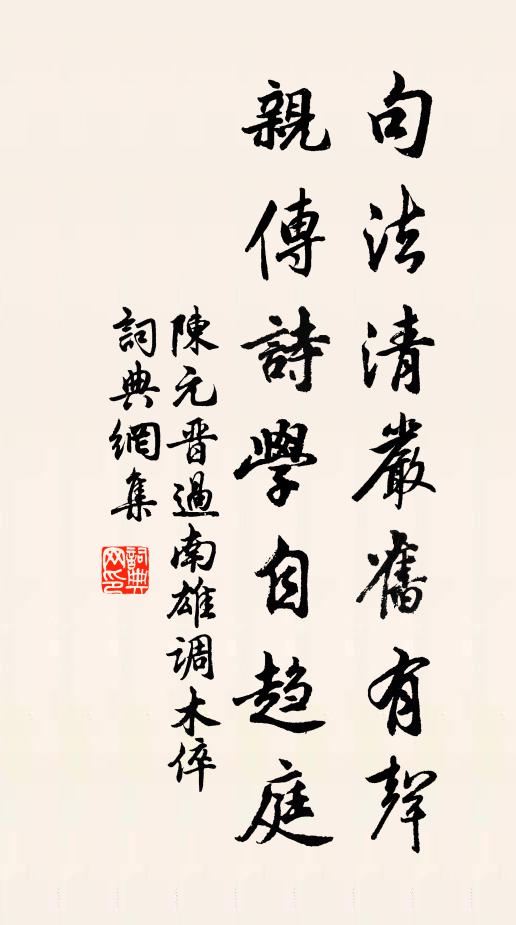 句法清嚴舊有聲
親傳詩學自趨庭
陳元晋過南雄調木倅
詞典網集
詞典網印